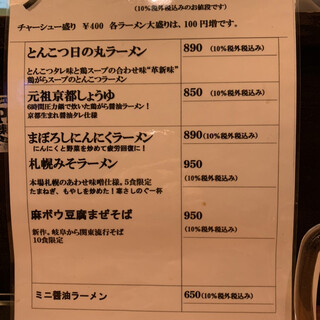 (10%税外税込みのお値段です)
チャーシュー盛り ¥400 各ラーメン大盛りは、100円増です。
とんこつ日の丸ラーメン 890 (10%税外税込み)
とんこつタレ味と鶏スープの合わせ味“革新味”
鶏がらスープのとんこつラーメン
元祖京都しょうゆ 850 (10%税外税込み)
6時間圧力鍋で炊いた鶏がら醤油ラーメン!
京都生まれ醤油タレ仕様)
まぼろしにんにくラーメン 890(10%税外税込み)
にんにくと野菜を炒めて疲労回復に!
札幌みそラーメン 950
(10%税外税込み)
本場札幌のあわせ味噌仕様。5食限定
たまねぎ、もやしを炒めた!寒さしのぐ一杯
麻ボウ豆腐まぜそば 950
(10%税外税込み)
新作。岐阜から関東流行そば
10食限定
ミニ醤油ラーメン 650(10%税外税込み)